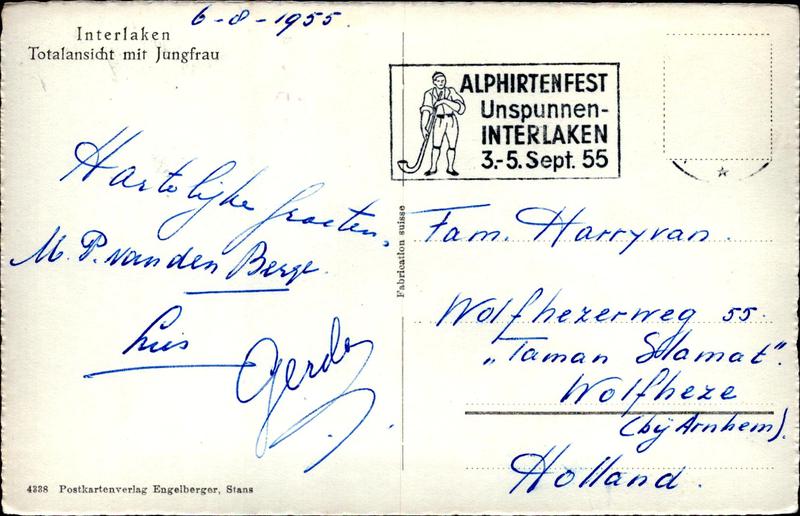 6-8-1955.
Interlaken
Totalansicht mit Jungfrau
ALPHIRTENFEST
Unspunnen-
INTERLAKEN
3.-5. Sept. 55
Hartelijke Groeten,
M. P. van den Berge.
Gerda
Fabrication suisse
Fam. Harryvan.
Wolfhezerweg 55.
„Taman Slamat".
Wolfheze
(bij Arnhem).
Holland.
4338 Postkartenverlag Engelberger, Stans